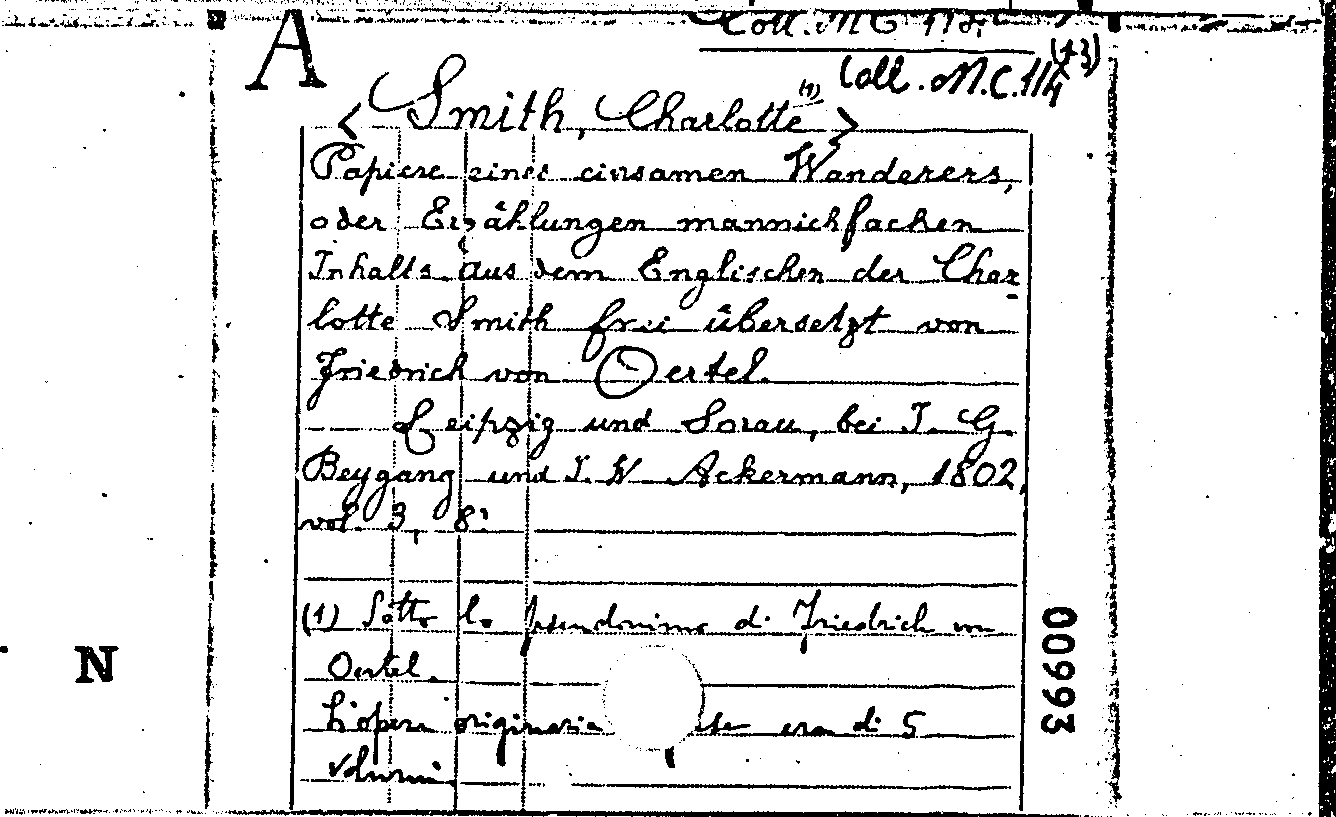 A
Coll. M.C. 1/4 (43)
< Smith, Charlotte (1) >
Papiere eines einsamen Wanderers,
oder Erzählungen mannichfachen
Inhalts. aus dem Englischen der Char
lotte Smith frei übersetzt von
Friedrich von Oertel.
Leipzig und Sorau, bei J. G.
Beygang und J. W. Ackermann, 1802,
vol. 3, 8:
(1) Sotto lo pseudonimo di Friedrich von
Oertel.
L'opera originaria era di 5
volumi.
N
009993